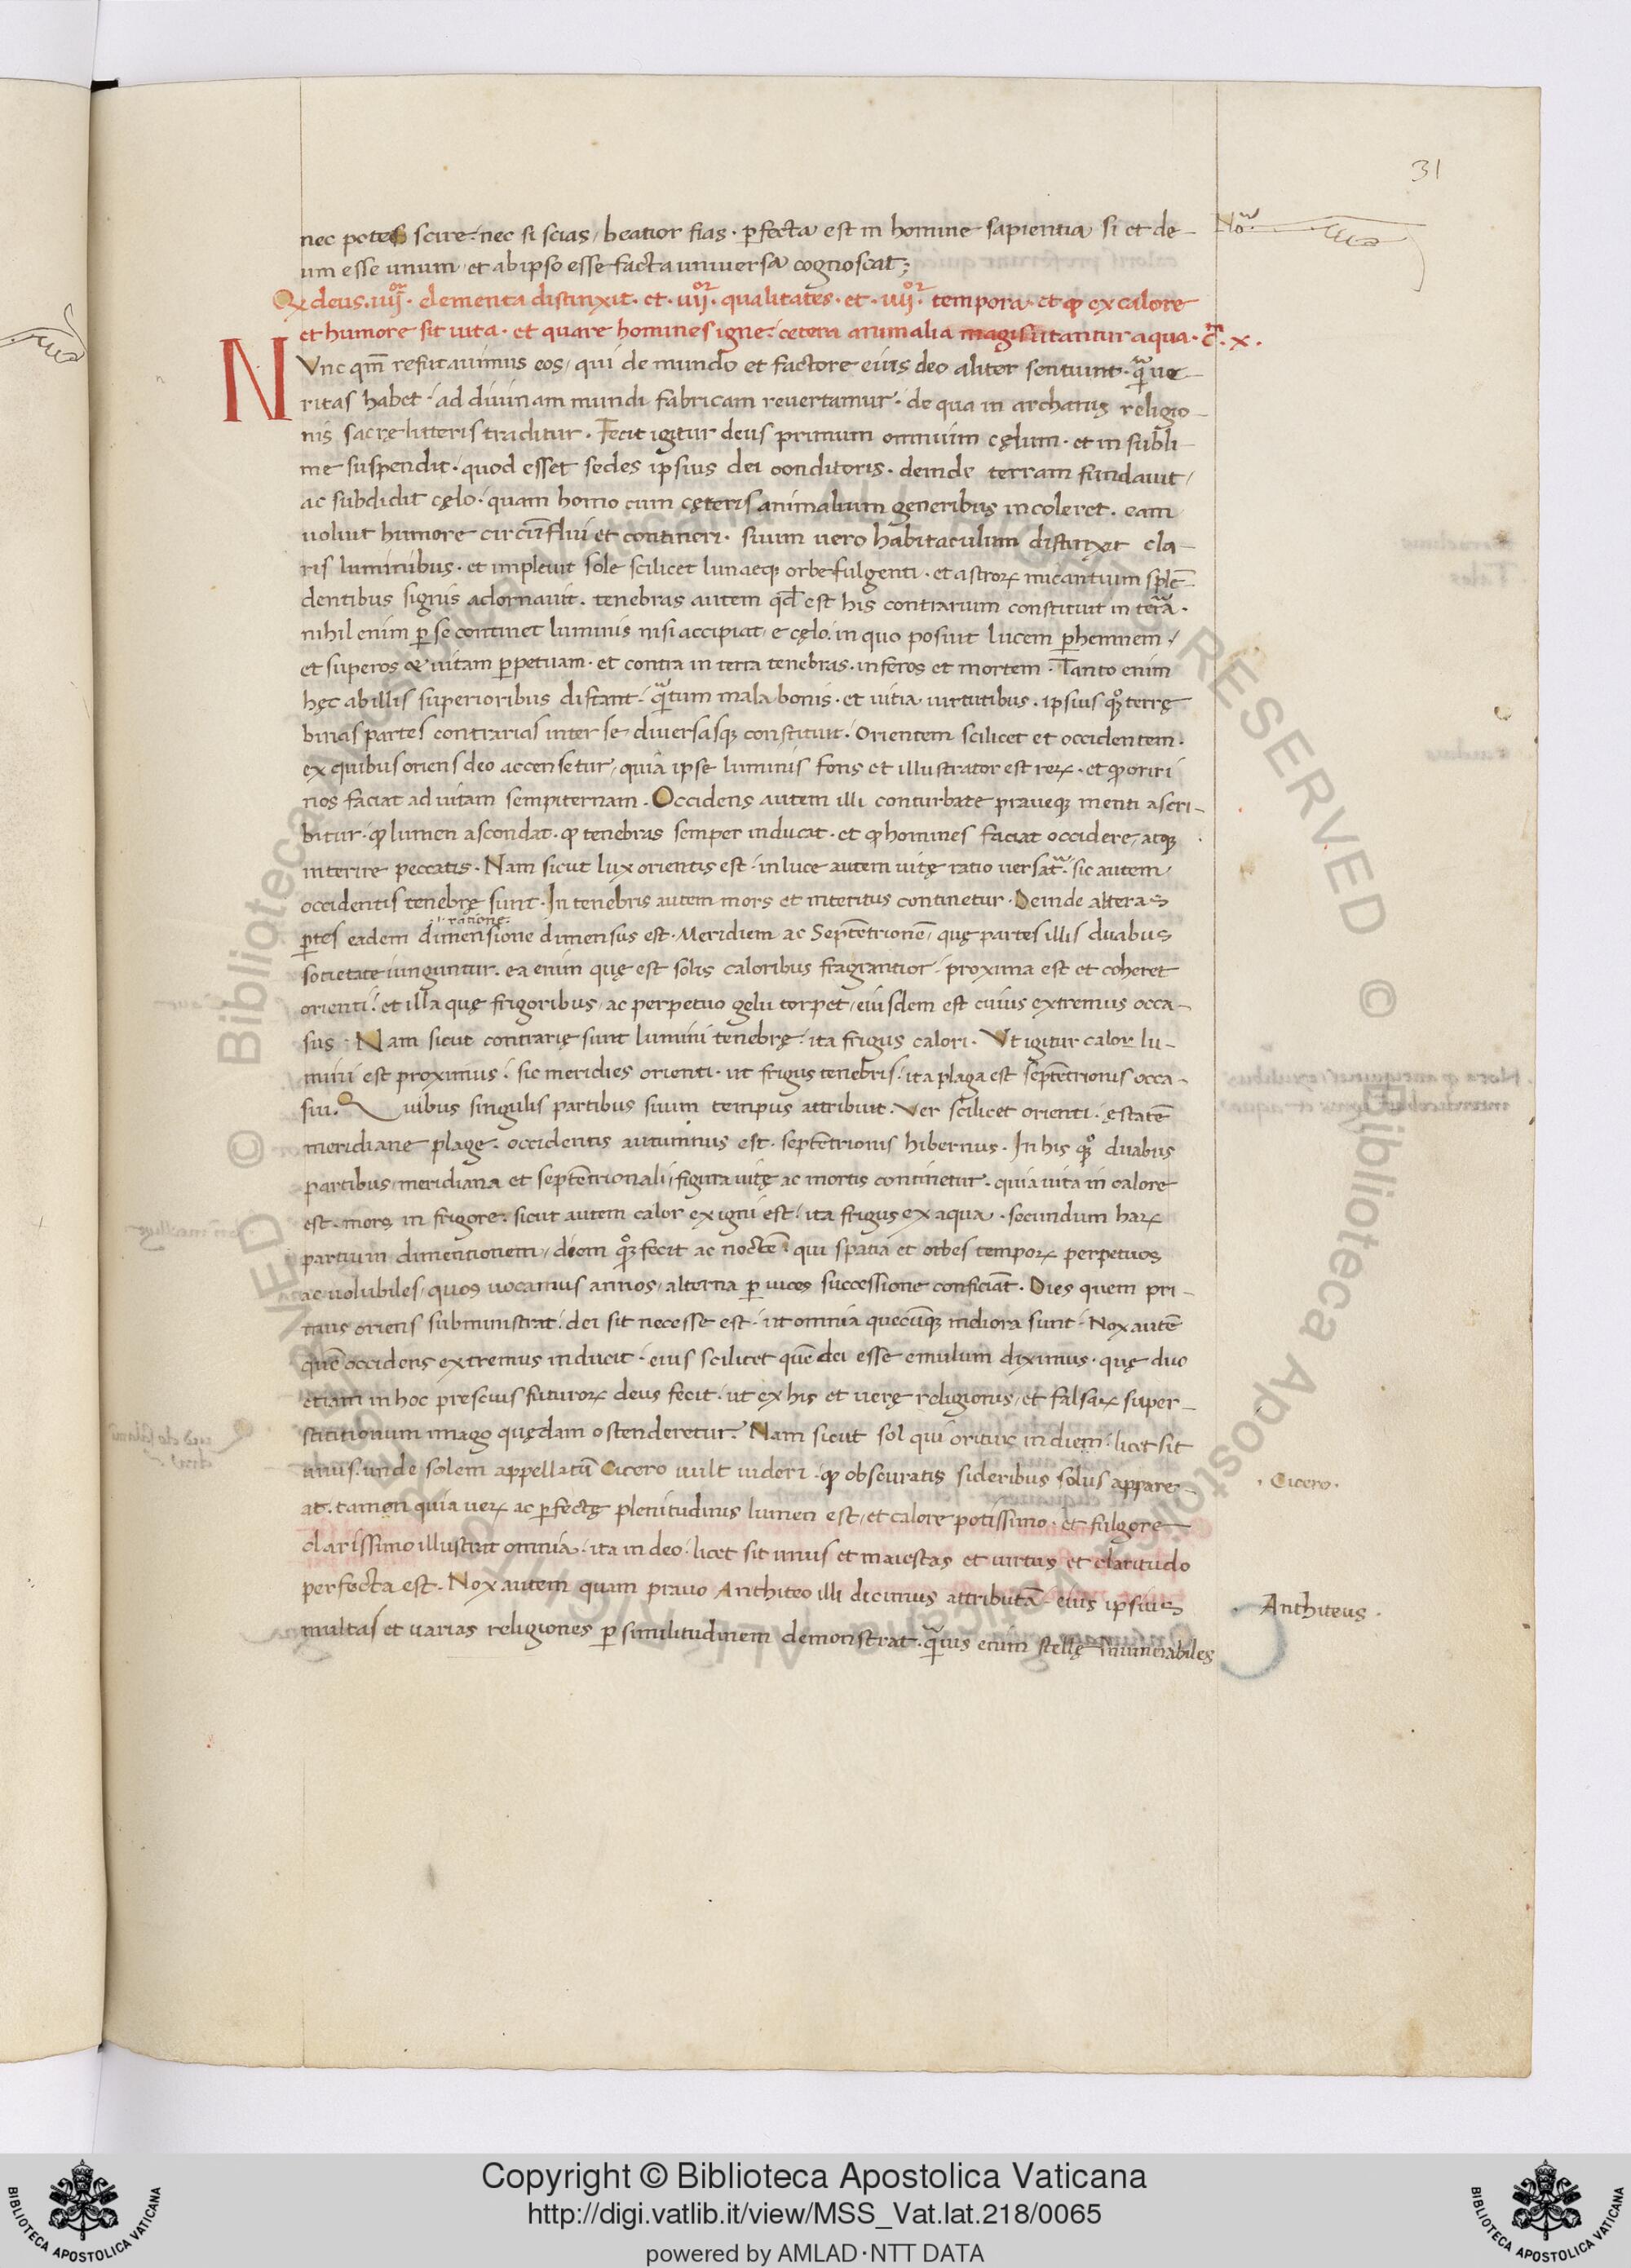 31
nec potes scire. nec si scias, beatior fias. ꝑfecta est in homine sapientia si et de-
um esse unum, et ab ipso esse facta universa cognoscat;
Nōᵃ.
Qx deus. iiijᵒʳ. elementa distinxit. et. iiijᵒʳ. qualitates. et. iiijᵒʳ. tempora. et ꝙ ex calore
et humore sit vita. et quare homines igne. cetera animalia magis utantur aqua. cᵐ. x.
NVnc qm̄ refutavimus eos, qui de mundo et factore eius deo aliter sentiunt. q̄ᵃ ve
ritas habet. ad divinam mundi fabricam revertamur. de qua in archanis religio-
nis sacrę litteris traditur. Fecit igitur deus primum omnium cęlum. et in subli-
me suspendit. quod esset sedes ipsius dei conditoris. deinde terram fundavit,
ac subdidit cęlo. quam homo cum cęteris animalium generibus incoleret. eam
voluit humore circūflui et contineri. suum vero habitaculum distinxit cla-
ris luminibus. et implevit sole scilicet lunaeqꝫ orbe fulgenti. et astroꝝ micantium splē-
dentibus signis adornavit. tenebras autem qđ est his contrarium constituit in terᵃa.
nihil enim ꝑ se continet luminis nisi accipiat e cęlo. in quo posuit lucem ꝑhennem,
et superos & vitam ꝑpetuam. et contra in terra tenebras. inferos et mortem. Tanto enim
hęc ab illis superioribus distant. qᵃtum mala bonis. et vitia virtutibus. ipsius qꝫᵒ terrę
binas partes contrarias inter se diversasqꝫ constituit. Orientem scilicet et occidentem.
ex quibus oriens deo accensetur, quia ipse luminis fons et illustrator est reꝝ. et ꝙ oriri
nos faciat ad vitam sempiternam. Occidens autem illi conturbate praveqꝫ menti ascri-
bitur. ꝙ lumen ascondat. ꝙ tenebras semper inducat. et ꝙ homines faciat occidere, atqꝫ
interire peccatis. Nam sicut lux orientis est. in luce autem vitę ratio versatᵃ. sic autem
occidentis tenebrę sunt. In tenebris autem mors et interitus continetur. Deinde alteras
ratione.
ꝑtes eadem dimensione dimensus est. Meridiem ac Septētrionē, quę partes illis duabus
societate iunguntur. ea enim quę est solis caloribus fragrantior. proxima est et coheret
orienti. et illa quę frigoribus, ac perpetuo gelu torpet, eiusdem est cuius extremus occa-
sus. Nam sicut contrarię sunt lumini tenebrę. ita frigus calori. Vt igitur calor lu-
mini est proximus. sic meridies orienti. ut frigus tenebris. ita plaga est septētrionis occa-
sui. Quibus singulis partibus suum tempus attribuit. Ver scilicet orienti. ęstatē
meridiane plage. occidentis autumnus est. septētrionis hibernus. In his qꝫᵒ duabus
partibus, meridiana et septētrionali, figura vitę ac mortis continetur. quia vita in calore
est. mors in frigore. sicut autem calor ex igni est. ita frigus ex aqua. secundum haꝝ
partium dimentionem, diem qꝫᵒ fecit ac noctē. qui spatia et orbes tempoꝝ perpetuos
ac volubiles, quos vocamus annos, alterna ꝑ vices successione conficiāt. Dies quem pri-
mus oriens subministrat. dei sit necesse est. ut omnia quecūqꝫ mdiora sunt. Nox autē
quē occidens extremus inducit. eius scilicet quē dei esse emulum diximus. quę duo
etiam in hoc prescius futuroꝝ deus fecit. ut ex his et verę religionis, et falsaꝝ super-
stititionum imago quędam ostenderetur. Nam sicut sol qui oritur in diem. licet sit
unus. unde solem appellatū Cicero vult videri. ꝙ obscuratis sideribus solus appare-
. Cicero.
at. tamen quia veꝝ ac ꝑfectę plenitudinis lumen est, et calore potissimo. et fulgore
clarissimo illustrat omnia. ita in deo. licet sit unus et maiestas et virtus et claritudo
perfecta est. Nox autem quam pravo Anthiteo illi dicimus attributā. eius ipsius
. Anthiteus.
multas et varias religiones ꝑ similitudinem demonstrat. qᵃvis enim stellę inumerabiles
Copyright © Biblioteca Apostolica Vaticana
http://digi.vatlib.it/view/MSS_Vat.lat.218/0065
powered by AMLAD·NTT DATA